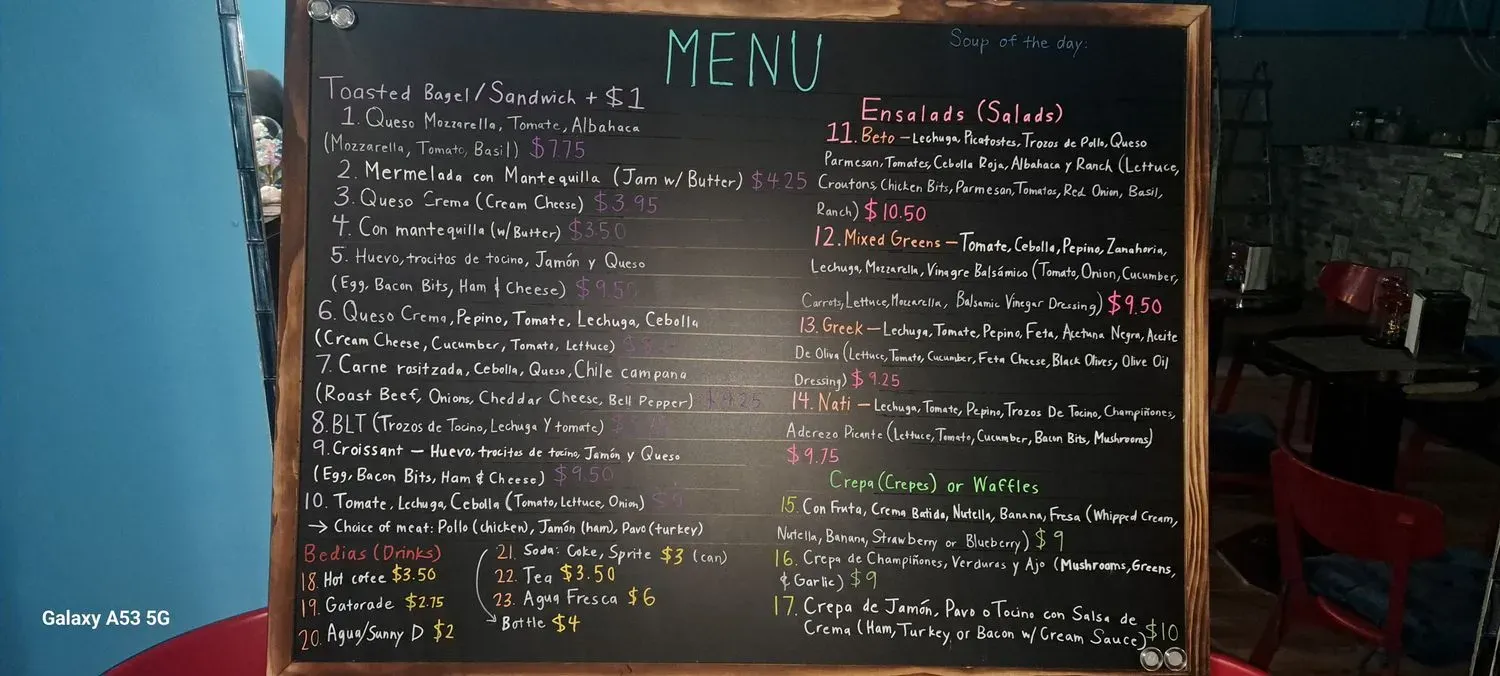 MENU
Soup of the day:
Toasted Bagel/Sandwich + $1
1. Queso Mozzarella, Tomate, Albahaca
(Mozzarella, Tomato, Basil) $7.75
2. Mermelada con Mantequilla (Jam w/ Butter) $4.25
3. Queso Crema (Cream Cheese) $3.95
4. Con mantequilla (w/Butter) $3.50
5. Huevo, trocitos de tocino, Jamón y Queso
(Egg, Bacon Bits, Ham & Cheese) $9.50
6. Queso Crema, Pepino, Tomate, Lechuga, Cebolla
(Cream Cheese, Cucumber, Tomato, Lettuce)
7. Carne rositzada, Cebolla, Queso, Chile campana
(Roast Beef, Onions, Cheddar Cheese, Bell Pepper)
8. BLT (Trozos de Tocino, Lechuga Y tomate)
9. Croissant — Huevo, trocitos de tocino, Jamón y Queso
(Egg, Bacon Bits, Ham & Cheese) $9.50
10. Tomate, Lechuga, Cebolla (Tomato, Lettuce, Onion) $9
→ Choice of meat: Pollo (chicken), Jamón (ham), Pavo (turkey)
Bedias (Drinks)
18. Hot cofee $3.50
19. Gatorade $2.75
20. Agua/Sunny D $2
21. Soda: Coke, Sprite $3 (can)
22. Tea $3.50
23. Agua Fresca $6
→ Bottle $4
Ensalads (Salads)
11. Beto — Lechuga, Picatostes, Trozos de Pollo, Queso
Parmesan, Tomates, Cebolla Roja, Albahaca y Ranch (Lettuce,
Croutons, Chicken Bits, Parmesan, Tomatos, Red Onion, Basil,
Ranch) $10.50
12. Mixed Greens — Tomate, Cebolla, Pepino, Zanahoria,
Lechuga, Mozzarella, Vinagre Balsámico (Tomato, Onion, Cucumber,
Carrots, Lettuce, Mozzarella, Balsamic Vinegar Dressing) $9.50
13. Greek — Lechuga, Tomate, Pepino, Feta, Acetuna Negra, Aceite
De Oliva (Lettuce, Tomato, Cucumber, Feta Cheese, Black Olives, Olive Oil
Dressing) $9.25
14. Nati — Lechuga, Tomate, Pepino, Trozos De Tocino, Champiñones,
Aderezo Picante (Lettuce, Tomato, Cucumber, Bacon Bits, Mushrooms)
$9.75
Crepa (Crepes) or Waffles
15. Con Fruta, Crema Batida, Nutella, Banana, Fresa (Whipped Cream,
Nutella, Banana, Strawberry or Blueberry) $9
16. Crepa de Champiñones, Verduras y Ajo (Mushrooms, Greens,
& Garlic) $9
17. Crepa de Jamón, Pavo o Tocino con Salsa de
Crema (Ham, Turkey, or Bacon w/ Cream Sauce) $10
Galaxy A53 5G